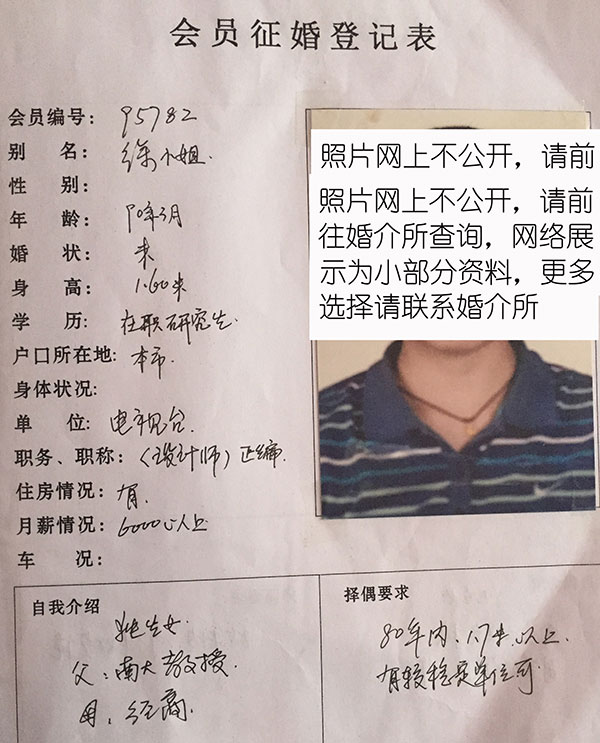 会员征婚登记表
会员编号: 95782
别 名: 徐小姐.
性 别:
年 龄: 90年3月
婚 状: 未
身 高: 1.60米
学 历: 在职研究生.
户口所在地: 本市.
身体状况:
单 位: 电视台.
职务、职称: (设计师) 正编.
住房情况: 有.
月薪情况: 6000以上
车 况:
照片网上不公开，请前
照片网上不公开，请前
往婚介所查询，网络展
示为小部分资料，更多
选择请联系婚介所
自我介绍
独生女
父：南大教授.
母. 经商.
择偶要求
80年内、1.7米以上.
有较稳定单位可